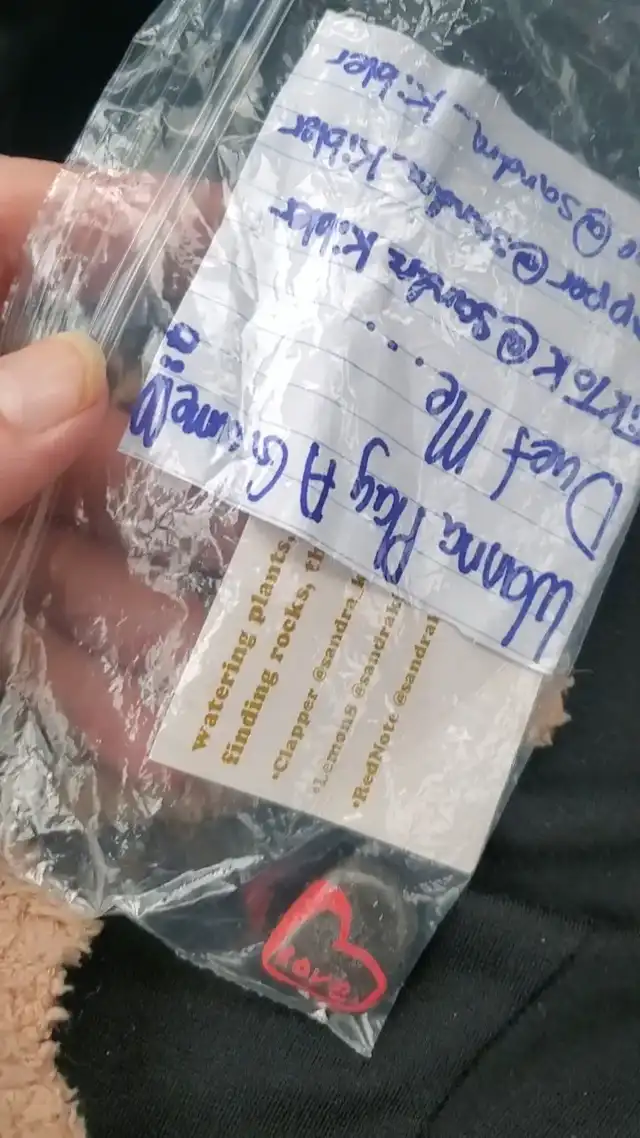 Wanna Play A Game!!
Duet Me...
TikTok@sandra Kibler
apper@sandra_Kibler
e@sandra_Kibler
watering plants,
finding rocks, th
•Clapper @sandra_k
•Lemon8 @sandrak
•RedNote @sandrak
Love